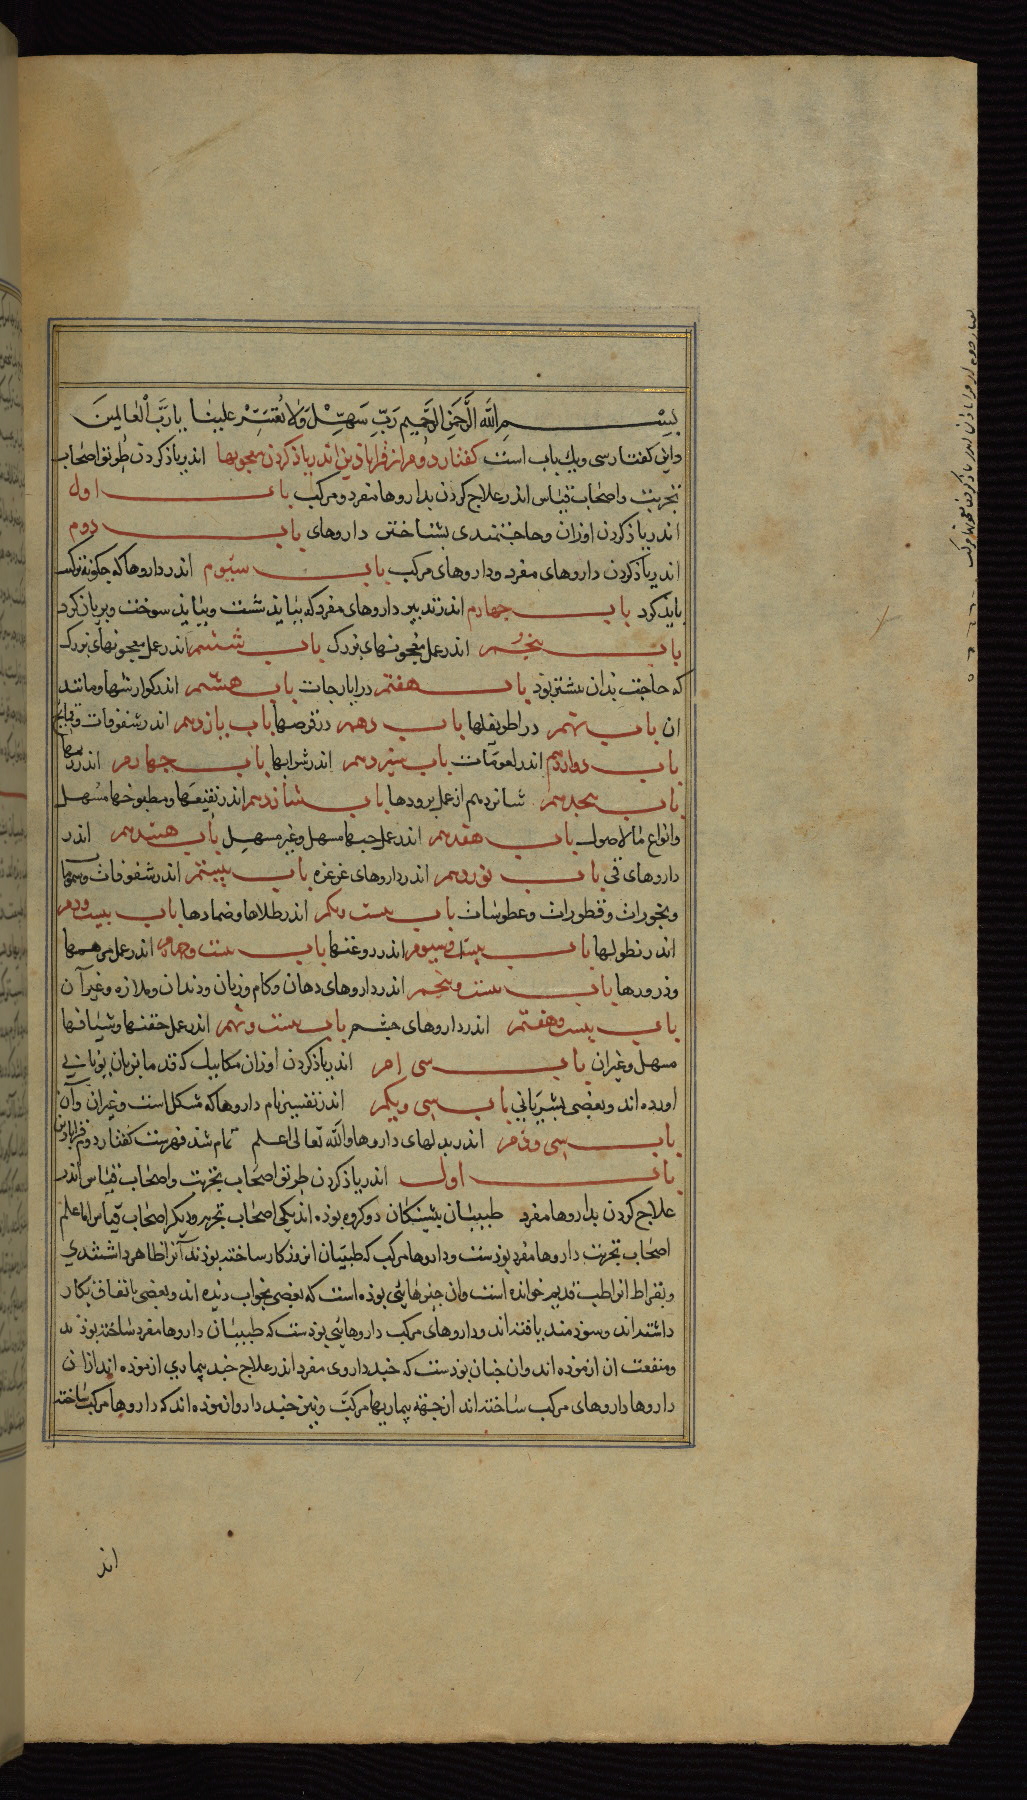 بسم الله الرحمن الرحیم رب سهل ولا تعسر علینا یا رب العالمین
واین کفتار سی ویك باب است کفتار دوم از قراباذین اندر یاذ کردن معجونها اندر یاذ کردن طریق اصحاب
تجربت واصحاب قیاس اندر علاج کردن بداروها مفرد ومرکب باب اول
اندر یاذ کردن اوزان وحاجتمندی بشناختن داروهای باب دوم
اندر یاذ کردن داروهای مفرد وداروهای مرکب باب سیوم اندر داروها که چکونه ترکیب
بایذ کرد باب چهارم اندر تدبیر داروهای مفرد که ببایذ شست وببایذ سوخت وبریان کرد
باب پنجم اندر عمل معجونهای بزرک باب ششم اندر عمل معجونهای بزرک
که حاجت بذان بیشتر بوذ باب هفتم در ایارجات باب هشتم اندر کوارشها ومانند
ان باب نهم در اطریفلها باب دهم در قرصها باب یازدهم اندر سفوفات
باب دوازدهم اندر لعوقات باب سیزدهم اندر شرابها باب چهاردهم اندر
باب پنجدهم شانزدهم از عمل برودها باب شانزدهم اندر نقیعها ومطبوخها مسهل
وانواع ماالاصول باب هفدهم اندر عمل حبها مسهل وغیر مسهل باب هشتدهم اندر
داروهای قی باب نوزدهم اندر داروهای غرغره باب بیستم اندر سفوفات
وبخورات وقطورات وعطوسات باب بیست ویکم اندر طلاها وضمادها باب بیست ودوم
اندر نطولها باب بیست وسیوم اندر روغنها باب بیست وچهارم اندر عمل مرهمها
وذرورها باب بیست وپنجم اندر داروهای دهان وکام وزبان ودندان وملازه وغیر آن
باب بیست وهفتم اندر داروهای چشم باب بیست ونهم اندر عمل حقنها وشیافها
مسهل وغیر ان باب سی ام اندر یاذ کردن اوزان مکاییل که قدما بزبان یونانی
اورده اند وبعضی بسریانی باب سی ویکم اندر تفسیر نام داروها که مشکل است وغیر ان
باب سی ودوم اندر بدلهای داروها والله تعالی اعلم تمام شد فهرست کفتار دوم قراباذین
باب اول اندر یاذ کردن طریق اصحاب تجربت واصحاب قیاس اندر
علاج کردن بداروها مفرد طبیبان پیشینکان دو کروه بوذه اند یکی اصحاب تجربه ودیکر اصحاب قیاس اما علم
اصحاب تجربت داروها مفرد بوذست وداروها مرکب که طبیبان این روزکار ساخته بوذند آنرا ظاهر داشتندی
وبقراط انرا طب قدیم خوانده است وان چیزهائی بوذه است که بعضی بخواب دیده اند وبعضی باتفاق بکار
داشته اند وسوذمند یافته اند وداروهای مرکب داروهائی بوذست که طبیبان داروها مفرد شناخته بوذند
ومنفعت ان ازموذه اند وان چنان بوذست که چند داروی مفرد اندر علاج چند بیماری ازموذه اند ازان
داروها داروهای مرکب ساخته اند از جهة بیماریها مرکب ونیز چند دارو ازموذه اند که داروها مرکب ساخته
اند